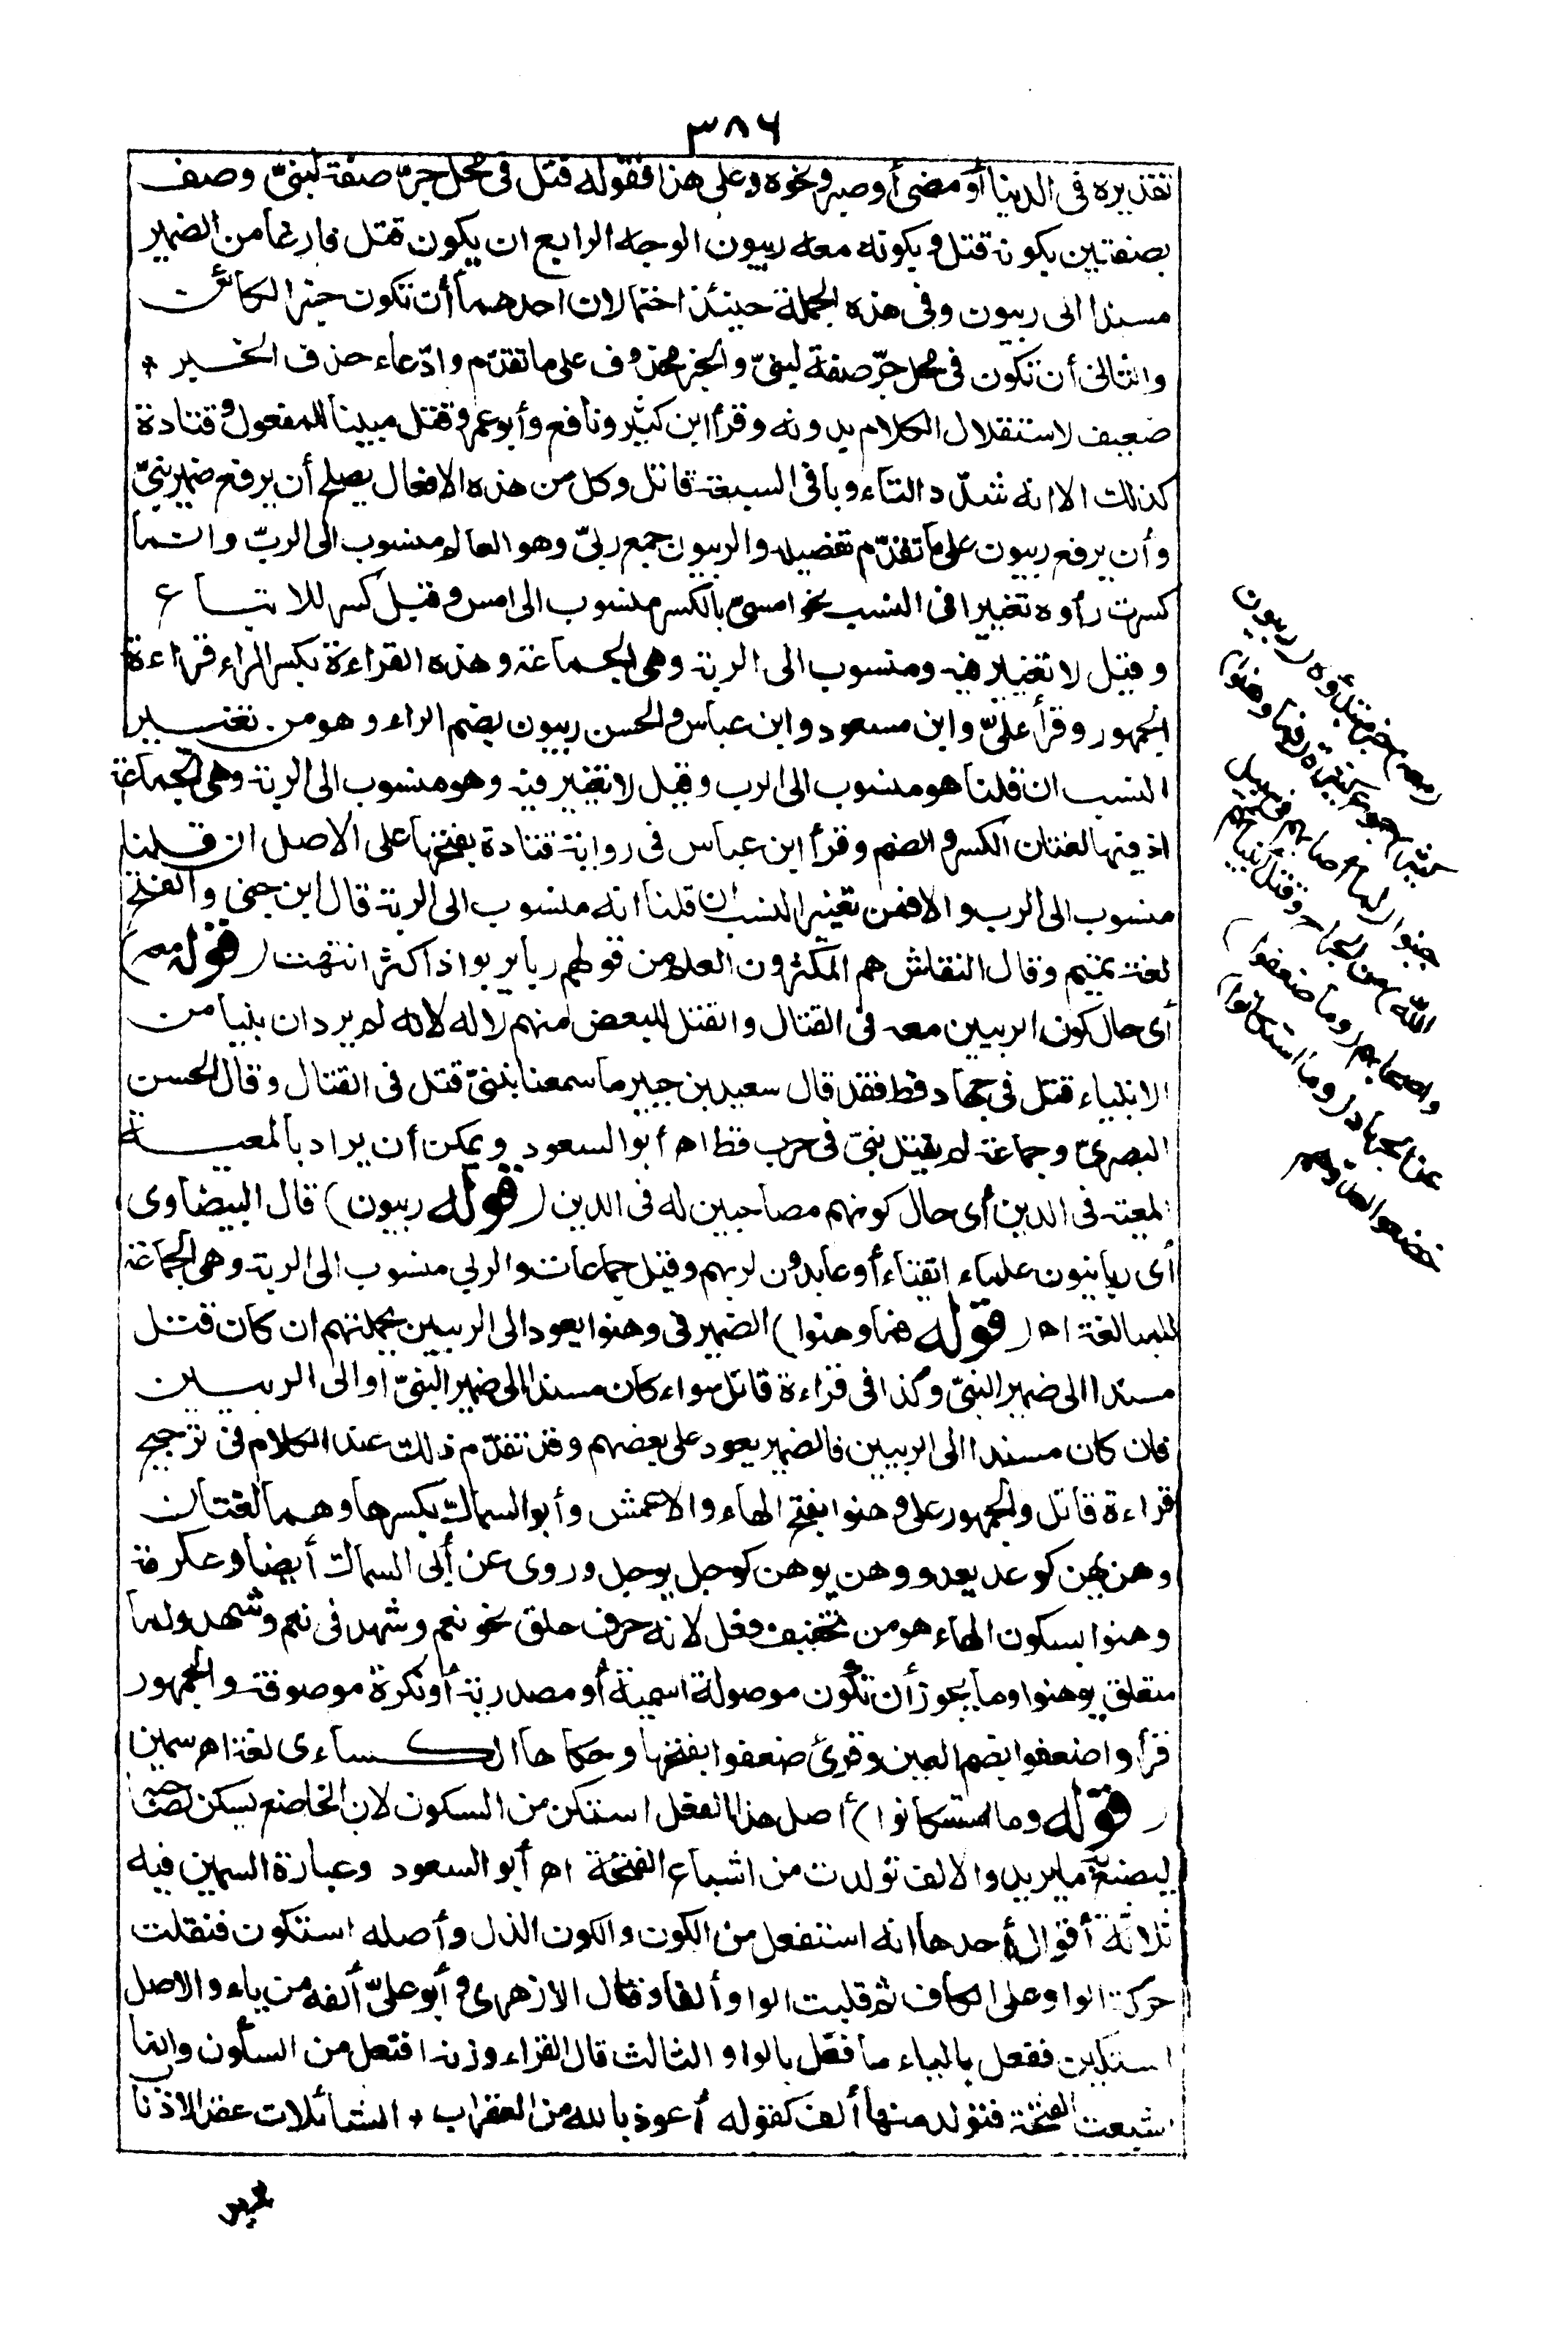 ٣٨٦
تقديره فى الدنيا أو مضى أو صبر ونحوه وعلى هذا فقوله قتل فى محل جرّ صفة لنبىّ وصف
بصفتين بكونه قتل وبكونه معه ربيون الوجه الرابع ان يكون قتل فارغا من الضمير
مسندا الى ربيون وفى هذه الجملة حينئذ احتمالان احدهما أن تكون خبرا لكائن
والثانى أن تكون فى محل جرّ صفة لنبىّ والخبر محذوف على ما تقدّم وادّعاء حذف الخبر *
ضعيف لاستقلال الكلام بدونه وقرأ ابن كثير ونافع وأبو عمرو قتل مبنيا للمفعول وقتادة
كذلك الا انه شدّد التاء وباقى السبعة قاتل وكل من هذه الافعال يصلح أن يرفع ضمير نبىّ
وأن يرفع ربيون على ما تقدّم تفصيله والربيون جمع ربىّ وهو العالم منسوب الى الربّ وانما
كسرت راؤه تغييرا فى النسب نحو امسىّ بالكسر منسوب الى امس وقيل كسر للاتباع
وقيل لا تغيير فيه ومنسوب الى الربة وهى الجماعة وهذه القراءة بكسر الراء قراءة
الجمهور وقرأ علىّ وابن مسعود وابن عباس والحسن ربيون بضم الراء وهو من تغيير
النسب ان قلنا هو منسوب الى الرب وقيل لا تغيير فيه وهو منسوب الى الربة وهى الجماعة
اذ فيها لغتان الكسر والضم وقرأ ابن عباس فى رواية قتادة بفتحها على الاصل ان قلنا
منسوب الى الرب والا فمن تغيير النسب ان قلنا انه منسوب الى الربة قال ابن جنى والفتح
لغة تميم وقال النقاش هم المكثرون العلم من قولهم ربا يربو اذا كثر انتهت (قوله معه)
أى حال كون الربيين معه فى القتال والقتل للبعض منهم لا له لانه لم يرد ان نبيا من
الانبياء قتل فى جهاد قط فقد قال سعيد بن جبير ما سمعنا بنبىّ قتل فى القتال وقال الحسن
البصرىّ وجماعة لم يقتل نبىّ فى حرب قط اه أبو السعود ويمكن أن يراد بالمعية
المعية فى الدين أى حال كونهم مصاحبين له فى الدين (قوله ربيون) قال البيضاوى
أى ربانيون علماء اتقياء أو عابدون لربهم وقيل جماعات والربى منسوب الى الربة وهى الجماعة
للمبالغة اه (قوله فما وهنوا) الضمير فى وهنوا يعود الى الربيين بجملتهم ان كان قتل
مسندا الى ضمير النبىّ وكذا فى قراءة قاتل سواء كان مسندا الى ضمير النبىّ او الى الربيين
فان كان مسندا الى الربيين فالضمير يعود على بعضهم وقد تقدّم ذلك عند الكلام فى ترجيح
قراءة قاتل والجمهور على وهنوا بفتح الهاء والاعمش وأبو السماك بكسرها وهما لغتان
وهن يهن كوعد يعد ووهن يوهن كوجل يوجل وروى عن أبى السماك أيضا وعكرمة
وهنوا بسكون الهاء هو من تخفيف فعل لانه حرف حلق نحو نعم وشهد فى نعم وشهد ولما
متعلق بوهنوا وما يجوز أن تكون موصولة اسمية أو مصدرية أو نكرة موصوفة والجمهور
قرأوا ضعفوا بضم العين وقرئ ضعفوا بفتحها وحكاها الكساءى لغة اه سمين
(قوله وما استكانوا) أصل هذا الفعل استكن من السكون لان الخاضع يسكن لصاحبه
ليصنع به ما يريد والالف تولدت من اشباع الفتحة اه أبو السعود وعبارة السمين فيه
ثلاثة أقوال أحدها انه استفعل من الكون والكون الذل وأصله استكون فنقلت
حركة الواو على الكاف ثم قلبت الواو ألفا وقال الازهرى وأبو علىّ ألفه من ياء والاصل
استكين ففعل بالياء ما فعل بالواو والثالث قال الفراء وزنه افتعل من السكون وانما
اشبعت الفتحة فتولد منها ألف كقوله أعوذ بالله من العقراب * الشائلات عقد الاذناب
(معه) خبر مبتدؤه (ربيون
كثير) جموع كثيرة (فما وهنوا)
جبنوا (لما أصابهم فى سبيل
الله) من الجراح وقتل أنبيائهم
وأصحابهم (وما ضعفوا)
عن الجهاد (وما استكانوا)
خضعوا لعدوّهم